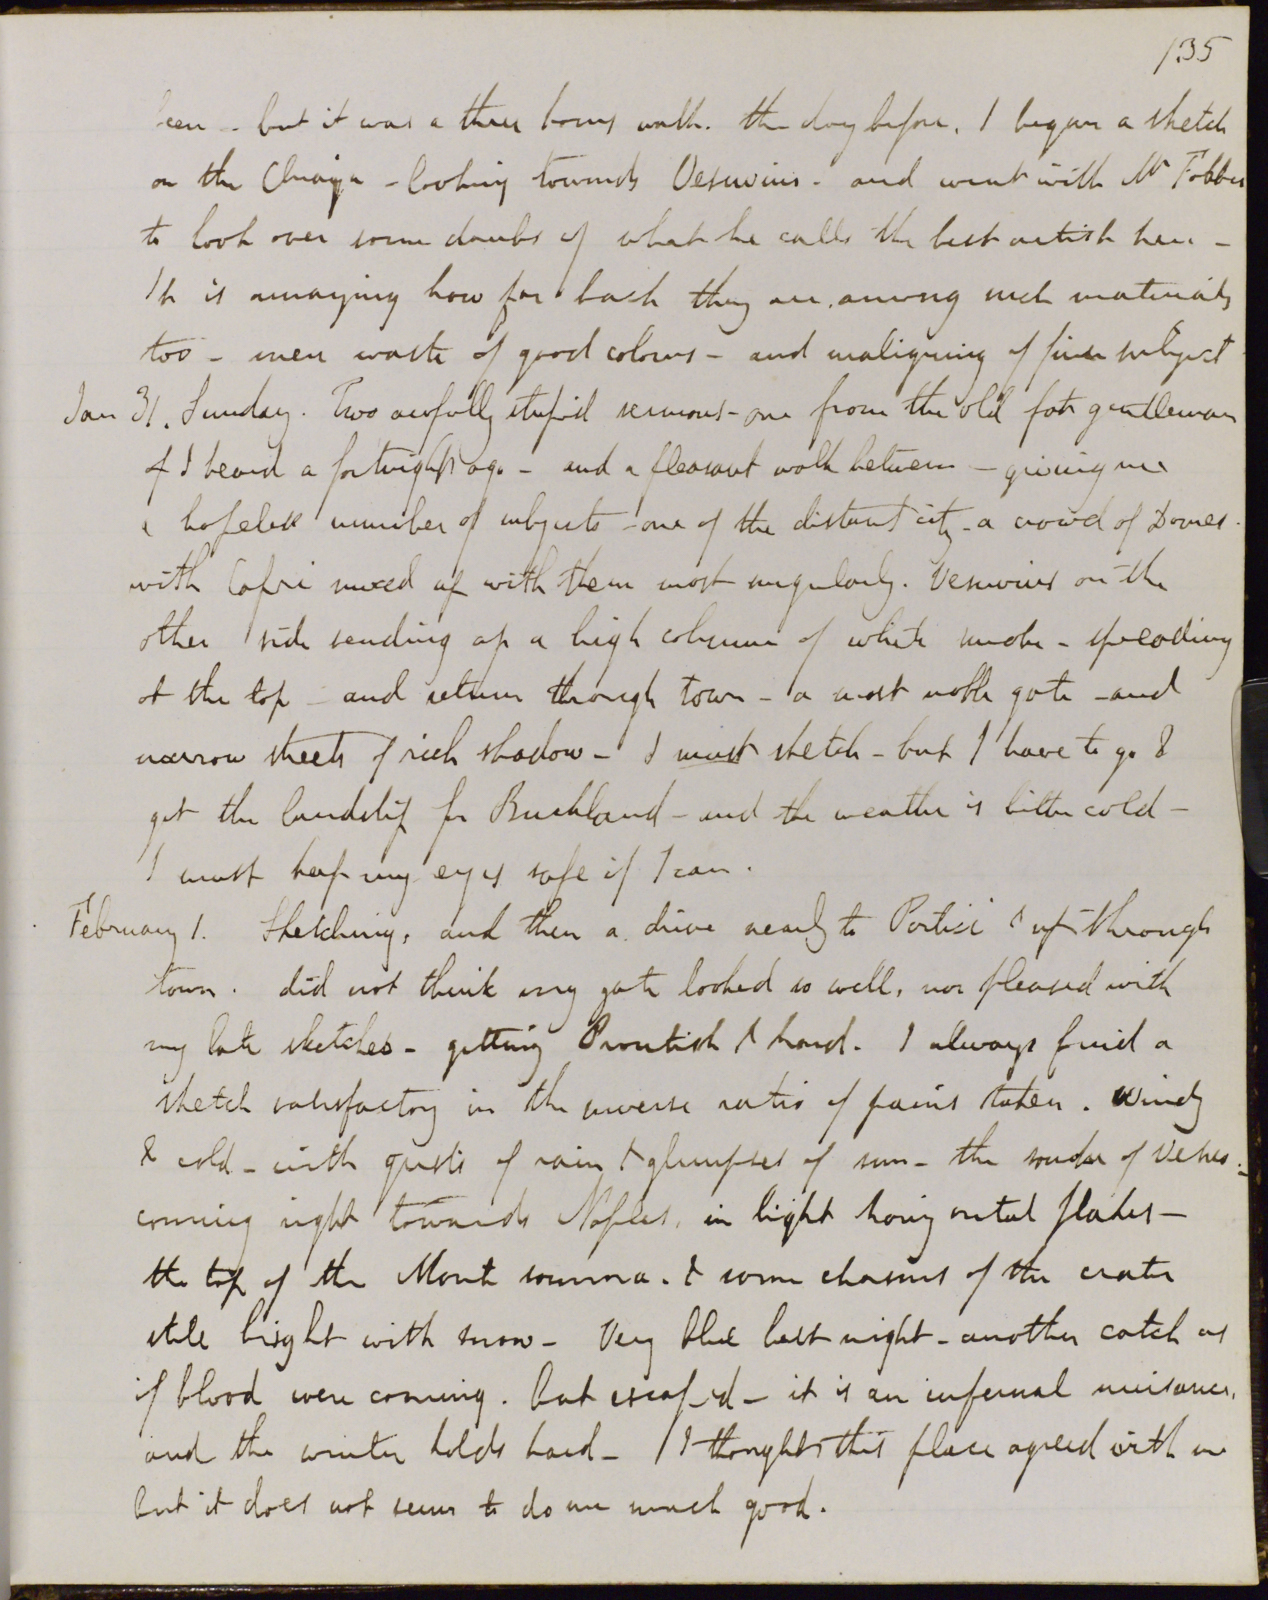 135
been - but it was a three hours walk. the day before, I began a sketch
on the Chiaja - looking towards Vesuvius - and went with Mr
to look over some daubs of what he calls the best artist here -
It is amazing how far back they are, among such materials
too - mere waste of good colours - and maligning of fine subject
Jan 31. Sunday. Two awfully stupid sermons - one from the old fat gentleman
I heard a fortnight ago - and a pleasant walk between - giving me
a hopeless number of subjects - one of the distant city - a crowd of Domes -
with Capri mixed up with them most singularly. Vesuvius on the
other side sending up a high column of white smoke - spreading
at the top - and return through town - a most noble gate - and
narrow streets of rich shadow - I must sketch - but I have to go &
get the landslip for Buckland - and the weather is bitter cold -
I must keep my eyes safe if I can.
February 1. Sketching, and then a drive nearly to Portici & up through
town. did not think my gate looked so well, nor pleased with
my late sketches - getting Proutish & hard. I always find a
sketch satisfactory in the inverse ratio of pains taken. Windy
& cold - with gusts of rain & glimpses of sun - the smoke of Vesuv.
coming right towards Naples, in light horizontal flakes -
the top of the Monte somma. & some chasms of the crater
still bright with snow - Very blue last night - another catch as
if blood were coming. but escaped - it is an infernal nuisance.
and the winter holds hard - I thought this place agreed with me
but it does not seem to do me much good.